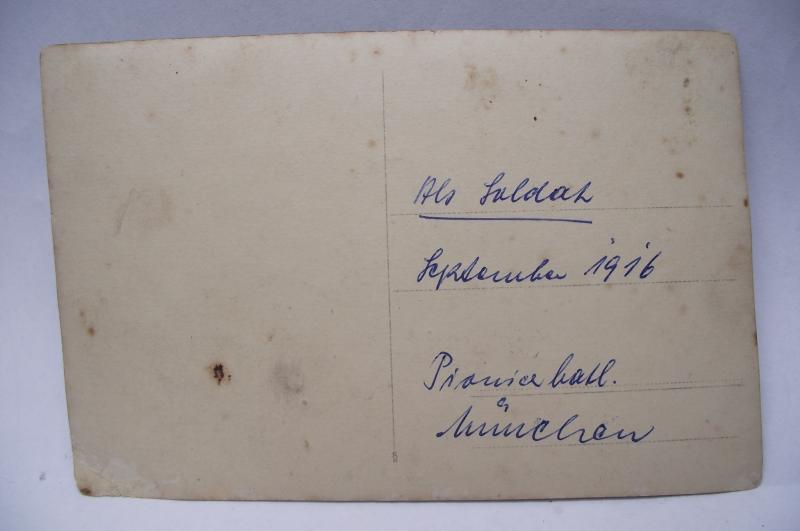 Als Soldat
September 1916
Pionierbatl.
München